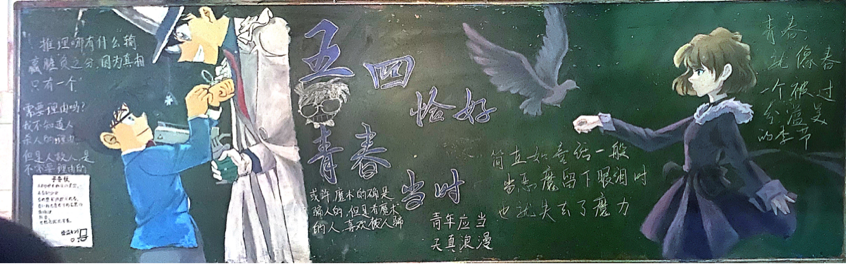 推理哪有什么输
赢胜负之分,因为真相
只有一个
需要理由吗?
我不知道人
杀人的理由
但是人救人,是
不需要理由的
五四
恰好
青春
当时
或许魔术的确是
骗人的,但是看魔术
的人,喜欢被人骗
青年应当
天真浪漫
简直如童话一般
当恶魔留下眼泪时
也就失去了魔力
青春
就像春
一个被过
分温美
的季节